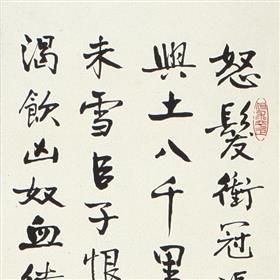 怒髮衝冠
與土八千里
未雪臣子恨
渴飲凶奴血